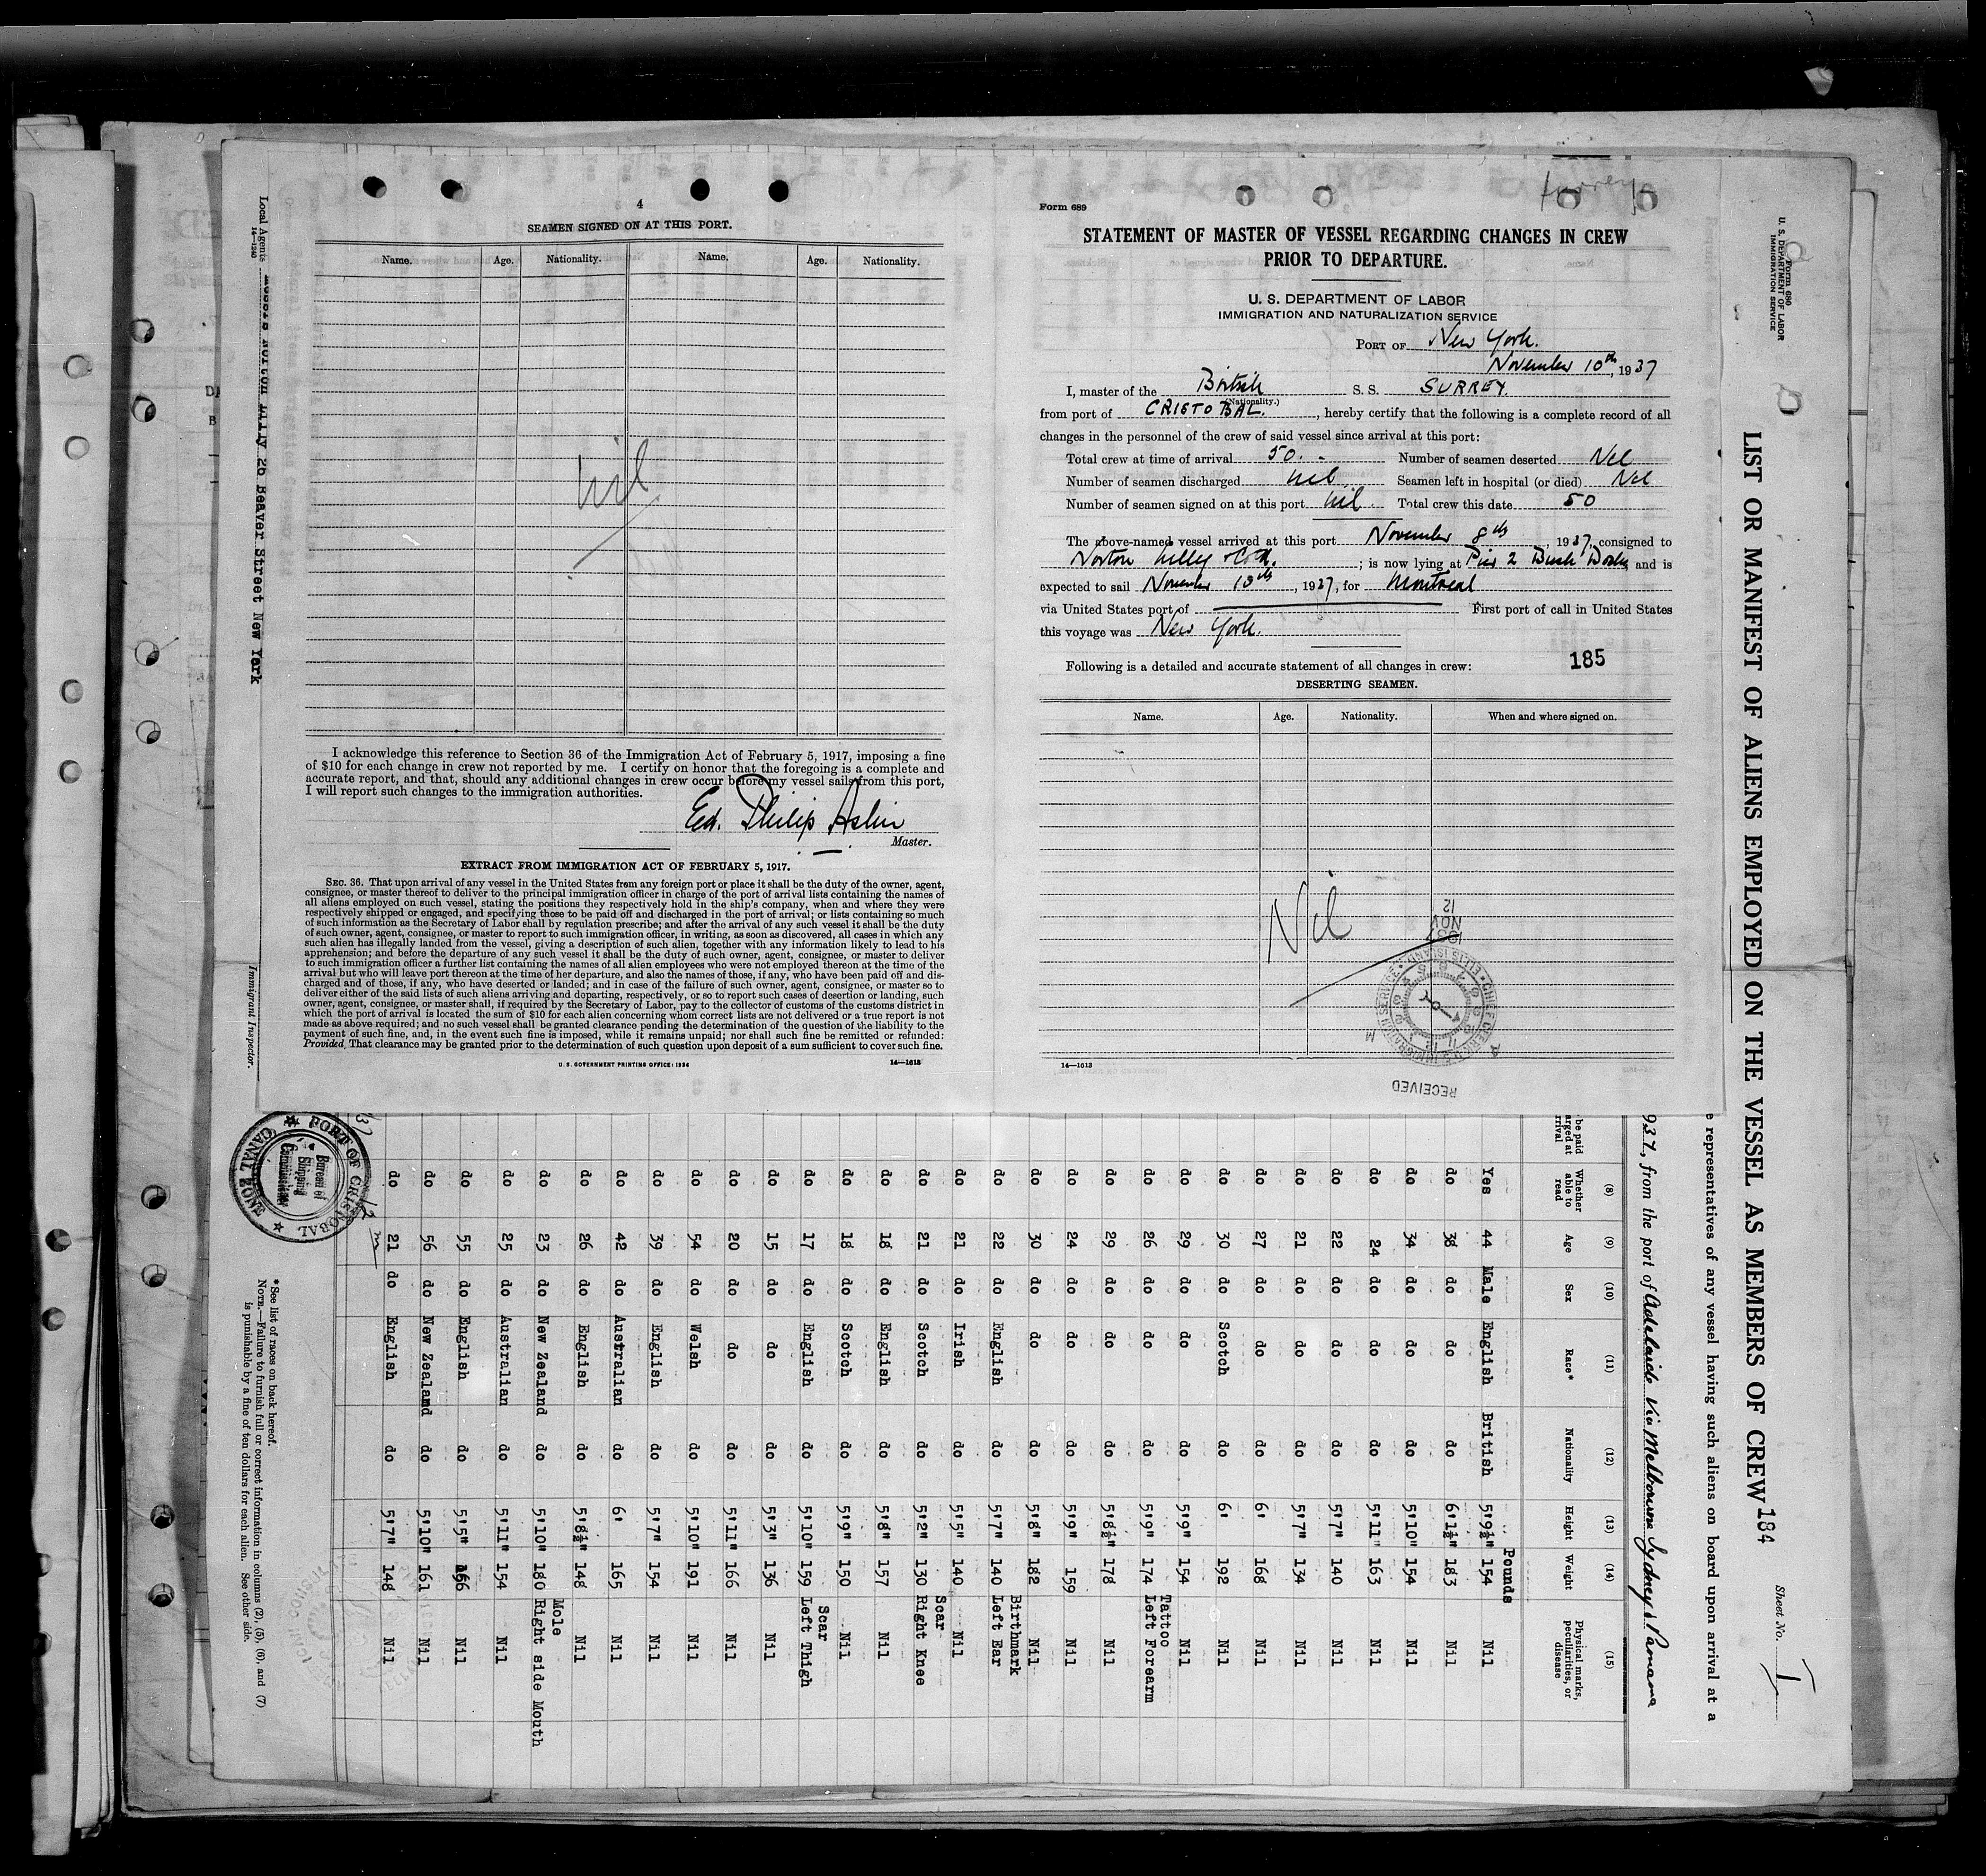 4
SEAMEN SIGNED ON AT THIS PORT.
Name. Age. Nationality. Name. Age. Nationality.
nil
I acknowledge this reference to Section 36 of the Immigration Act of February 5, 1917, imposing a fine
of $10 for each change in crew not reported by me. I certify on honor that the foregoing is a complete and
accurate report, and that, should any additional changes in crew occur before my vessel sails from this port,
I will report such changes to the immigration authorities.
Ed. Philip Aslin
Master.
EXTRACT FROM IMMIGRATION ACT OF FEBRUARY 5, 1917.
SEC. 36. That upon arrival of any vessel in the United States from any foreign port or place it shall be the duty of the owner, agent,
consignee, or master thereof to deliver to the principal immigration officer in charge of the port of arrival lists containing the names of
all aliens employed on such vessel, stating the positions they respectively hold in the ship's company, when and where they were
respectively shipped or engaged, and specifying those to be paid off and discharged in the port of arrival; or lists containing so much
of such information as the Secretary of Labor shall by regulation prescribe; and after the arrival of any such vessel it shall be the duty
of such owner, agent, consignee, or master to report to such immigration officer, in writing, as soon as discovered, all cases in which any
such alien has illegally landed from the vessel, giving a description of such alien, together with any information likely to lead to his
apprehension; and before the departure of any such vessel it shall be the duty of such owner, agent, consignee, or master to deliver
to such immigration officer a further list containing the names of all alien employees who were not employed thereon at the time of the
arrival but who will leave port thereon at the time of her departure, and also the names of those, if any, who have been paid off and dis-
charged and of those, if any, who have deserted or landed; and in case of the failure of such owner, agent, consignee, or master so to
deliver either of the said lists of such aliens arriving and departing, respectively, or so to report such cases of desertion or landing, such
owner, agent, consignee, or master shall, if required by the Secretary of Labor, pay to the collector of customs of the customs district in
which the port of arrival is located the sum of $10 for each alien concerning whom correct lists are not delivered or a true report is not
made as above required; and no such vessel shall be granted clearance pending the determination of the question of the liability to the
payment of such fine, and, in the event such fine is imposed, while it remains unpaid; nor shall such fine be remitted or refunded:
Provided, That clearance may be granted prior to the determination of such question upon deposit of a sum sufficient to cover such fine.
U. S. GOVERNMENT PRINTING OFFICE: 1934 14—1613
Form 689
STATEMENT OF MASTER OF VESSEL REGARDING CHANGES IN CREW
PRIOR TO DEPARTURE.
U. S. DEPARTMENT OF LABOR
IMMIGRATION AND NATURALIZATION SERVICE
PORT OF New York.
November 10th, 1937
I, master of the British S. S. SURREY.
(Nationality.)
from port of CRISTOBAL., hereby certify that the following is a complete record of all
changes in the personnel of the crew of said vessel since arrival at this port:
Total crew at time of arrival 50. Number of seamen deserted Nil
Number of seamen discharged nil Seamen left in hospital (or died) Nil
Number of seamen signed on at this port nil Total crew this date 50
The above-named vessel arrived at this port November 8th, 1937, consigned to
Norton Lilly & Co.; is now lying at Pier 2 Bush Docks and is
expected to sail November 10th, 1937, for Montreal
via United States port of First port of call in United States
this voyage was New York.
Following is a detailed and accurate statement of all changes in crew:
185
DESERTING SEAMEN.
Name. Age. Nationality. When and where signed on.
Nil
1937
NOV
12
CHIEF CLERK U.S. IMMIGRATION SERVICE ELLIS ISLAND
RECEIVED
14—1613
U. S. DEPARTMENT OF LABOR
IMMIGRATION SERVICE
Form 680
LIST OR MANIFEST OF ALIENS EMPLOYED ON THE VESSEL AS MEMBERS OF CREW
184
Sheet No. 1
representatives of any vessel having such aliens on board upon arrival at a
937, from the port of Adelaide via Melbourne Sydney & Panama
(8) (9) (10) (11) (12) (13) (14) (15)
Whether able to read Age Sex Race* Nationality Height Weight Physical marks, peculiarities, or disease
Pounds
Yes 44 Male English British 5'9½" 154 Nil
do 38 do do do 6'1½" 183 Nil
do 34 do do do 5'10" 154 Nil
do 24 do do do 5'11" 163 Nil
do 22 do do do 5'7" 140 Nil
do 21 do do do 5'7" 134 Nil
do 27 do do do 6' 168 Nil
do 30 do Scotch do 6' 192 Nil
do 29 do do do 5'9" 154 Nil
do 26 do do do 5'9" 174 Tattoo Left Forearm
do 29 do do do 5'8½" 178 Nil
do 24 do do do 5'9" 159 Nil
do 30 do do do 5'8" 182 Nil
do 22 do English do 5'7" 140 Birthmark Left Ear
do 21 do Irish do 5'5" 140 Nil
do 21 do Scotch do 5'2" 130 Scar Right Knee
do 18 do English do 5'8" 157 Nil
do 18 do Scotch do 5'9" 150 Nil
do 17 do English do 5'10" 159 Scar Left Thigh
do 15 do do do 5'3" 136 Nil
do 20 do do do 5'11" 166 Nil
do 54 do Welsh do 5'10" 191 Nil
do 39 do English do 5'7" 154 Nil
do 42 do Australian do 6' 165 Nil
do 26 do English do 5'8½" 148 Nil
do 23 do New Zealand do 5'10" 180 Mole Right side Mouth
do 25 do Australian do 5'11" 154 Nil
do 55 do English do 5'5" 166 Nil
do 56 do New Zealand do 5'10" 161 Nil
do 21 do English do 5'7" 148 Nil
PORT OF CRISTOBAL
CANAL ZONE
Bureau of
Shipping
Commissioner
*See list of races on back hereof.
NOTE.—Failure to furnish full or correct information in columns (2), (5), (6), and (7)
is punishable by a fine of ten dollars for each alien. See other side.
Local Agents Norton Lilly 26 Beaver Street New York
14—1240
Immigrant Inspector.